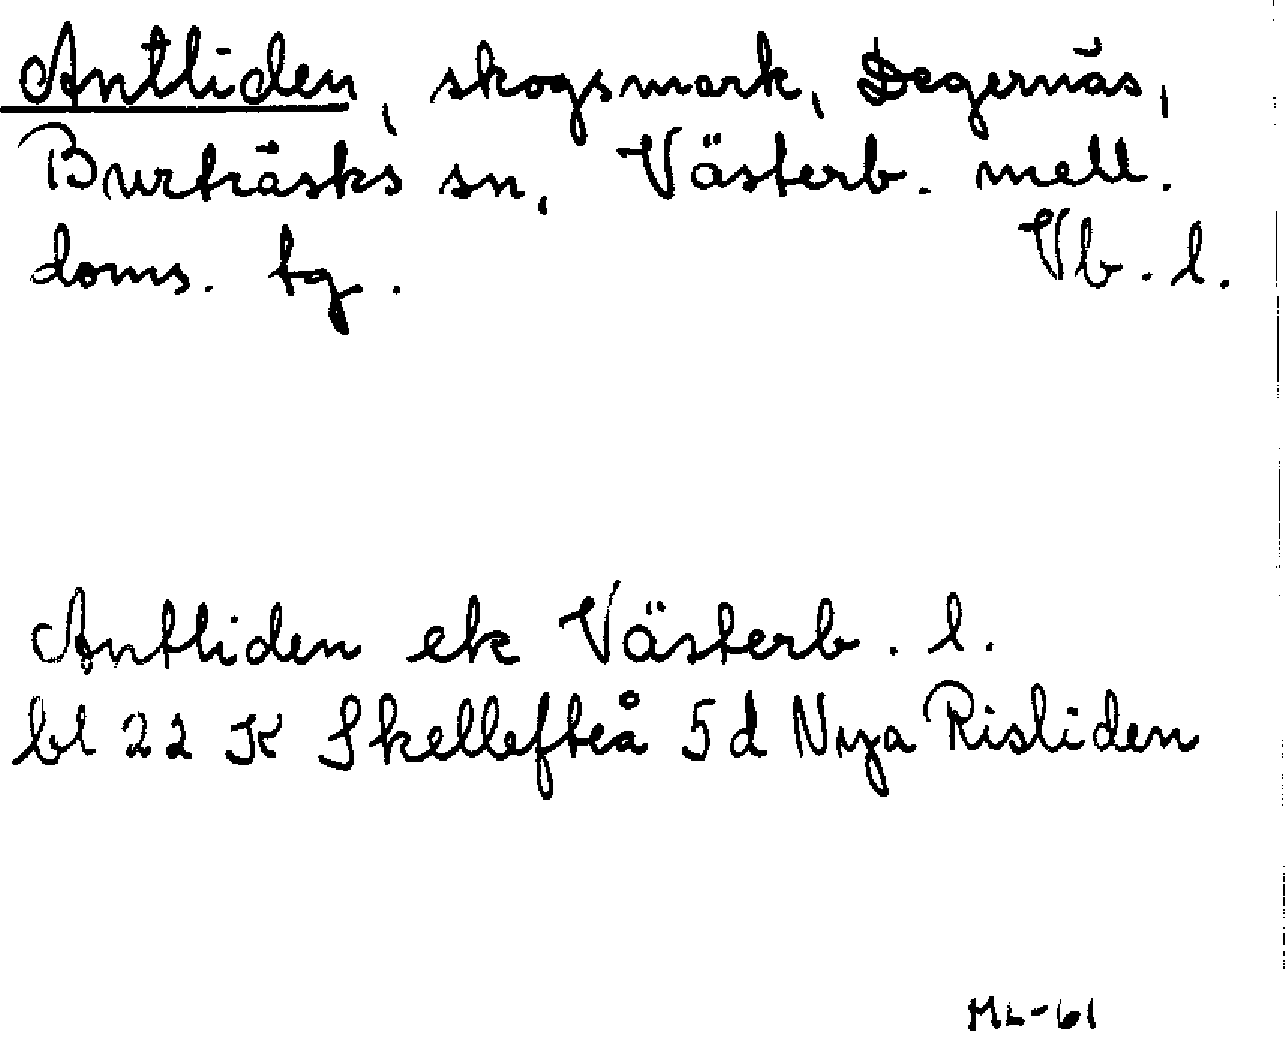 Antliden, skogsmark, Degernäs,
Burträsks sn, Västerb. mell.
doms. tg. Vb. l.
Antliden ek Västerb. l.
bl 22 K Skellefteå 5d Nya Risliden
ML-61